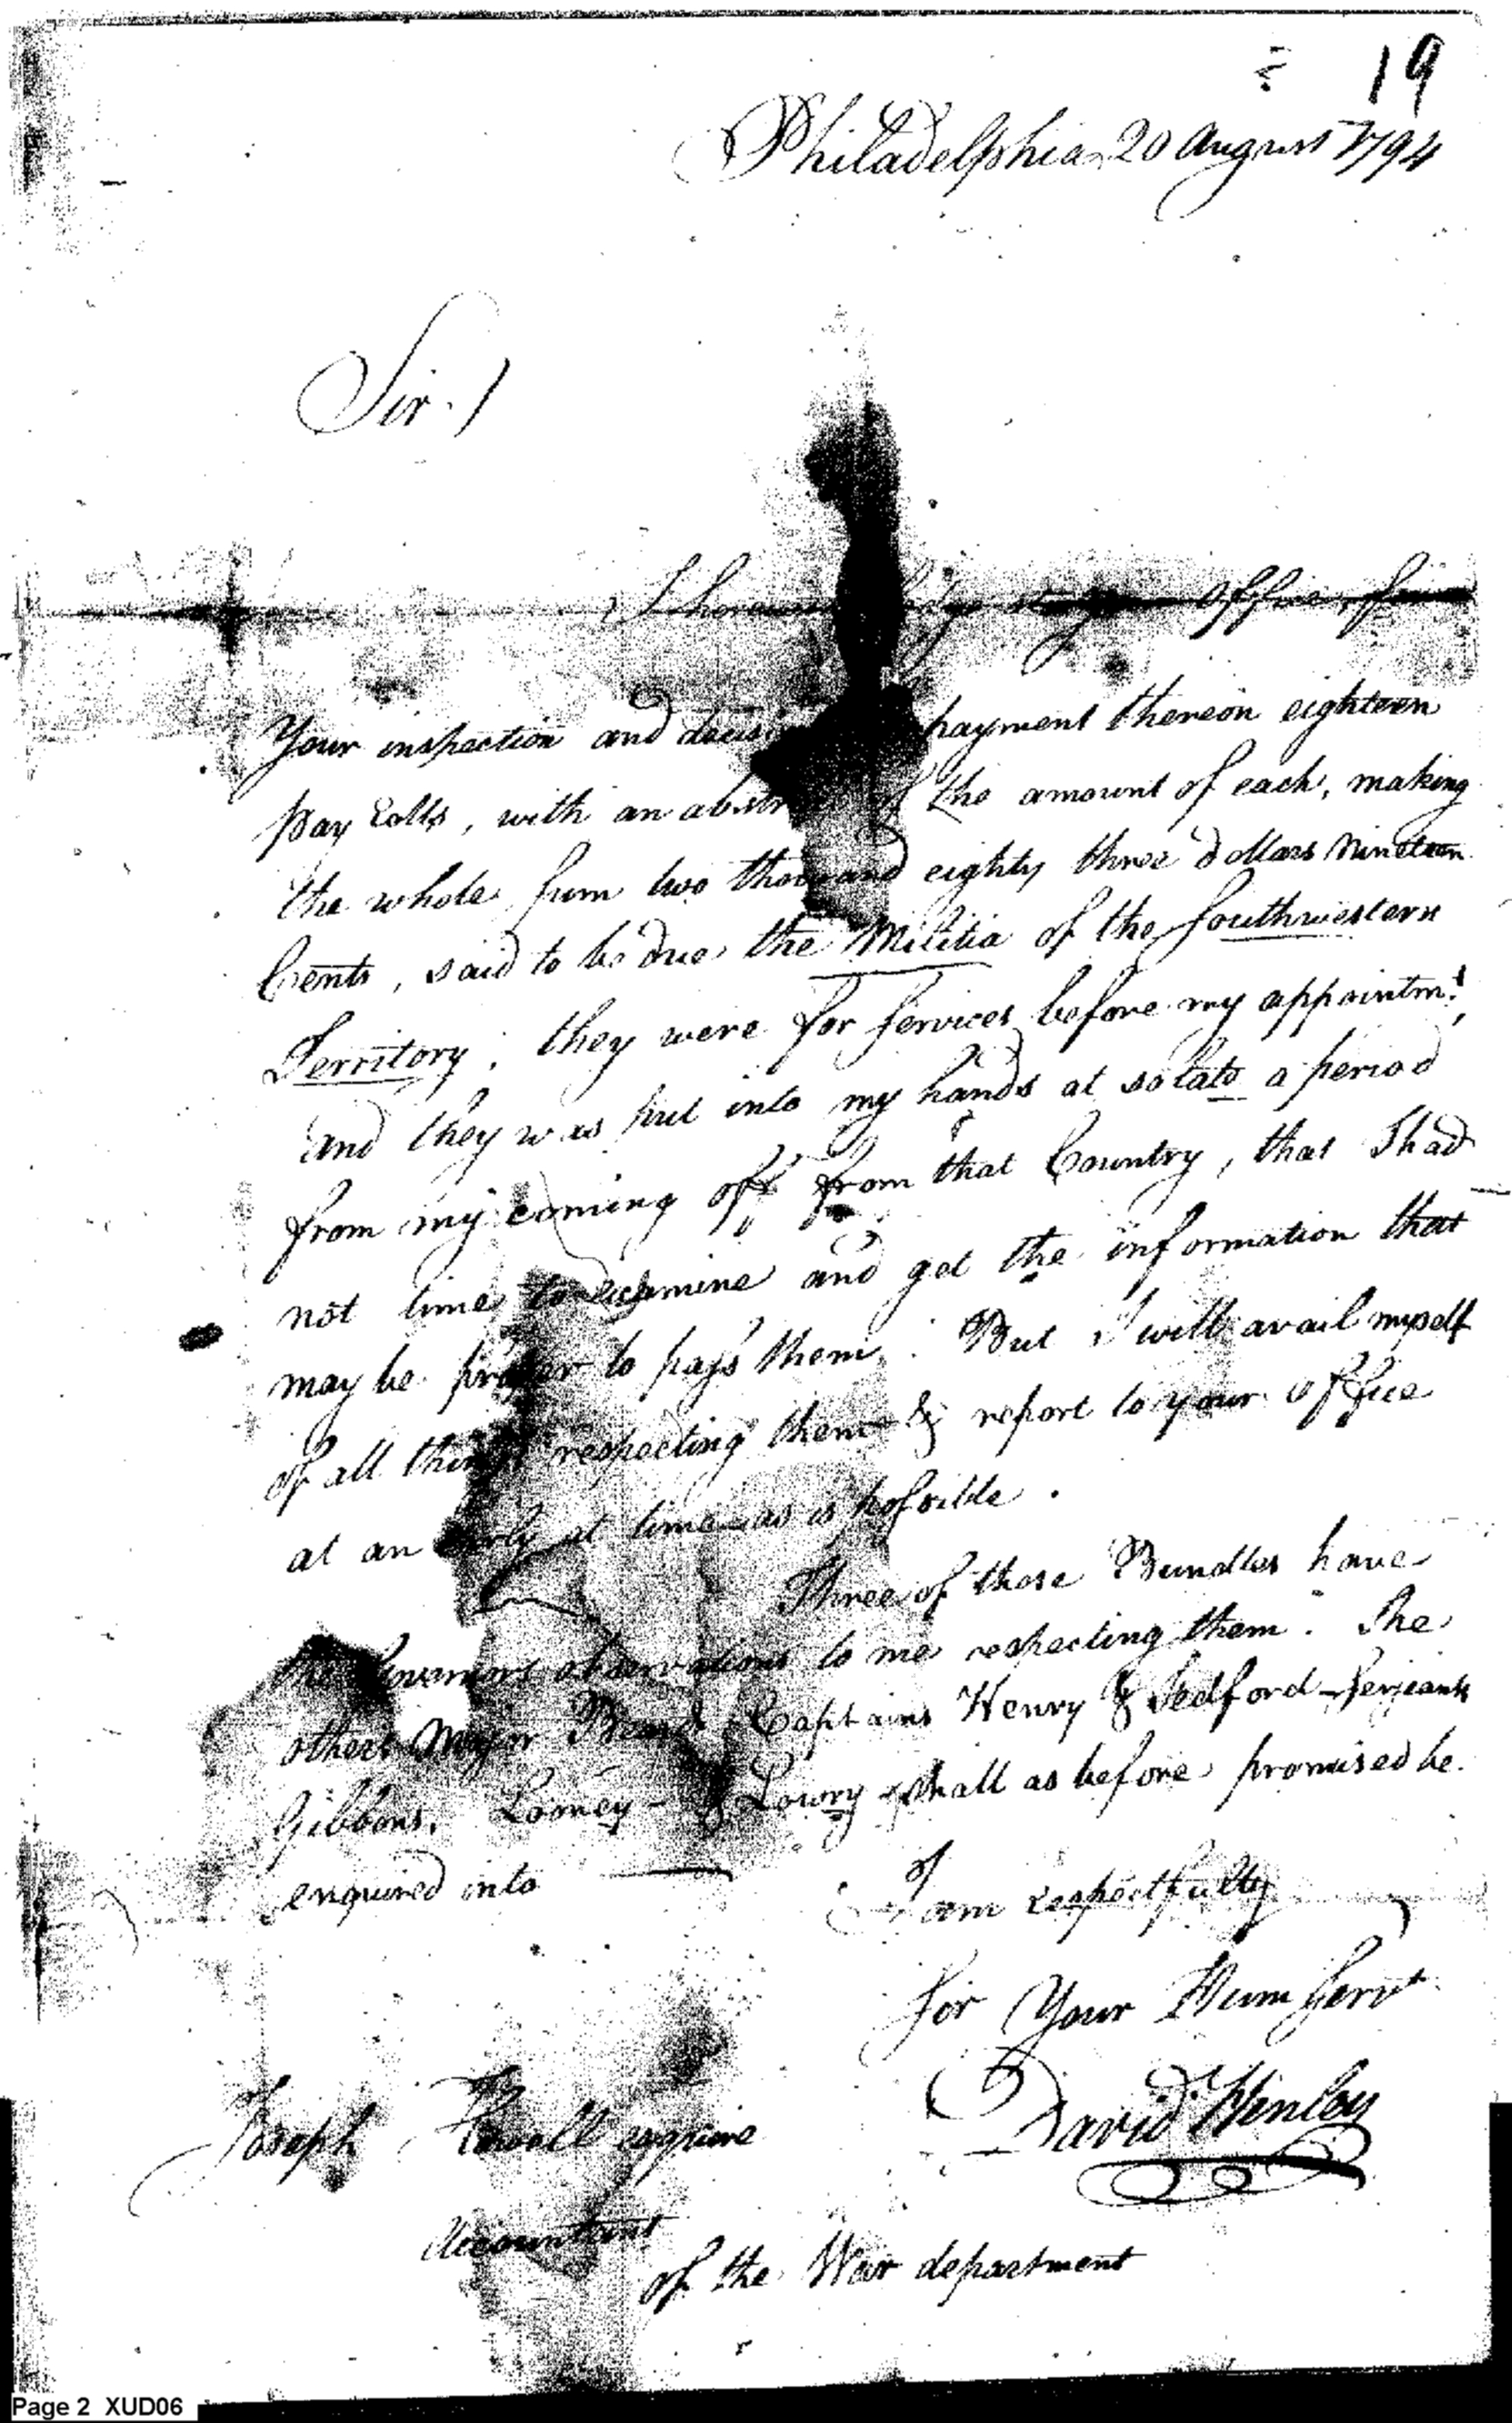 19
Philadelphia 20 August 1794
Sir.
I herewith lodge at your Office, for
Your inspection and decision payment thereon eighteen
pay Rolls, with an abstract of the amount of each, making
the whole sum two thousand eighty three dollars Nineteen
Cents, said to be due the Militia of the Southwestern
Territory; they were for services before my appointmt,
and they was put into my hands at so late a period
from my coming off from that Country, that I had
not time to examine and get the information that
may be proper to pass them. But I will avail myself
of all things respecting them & report to your office
at an early at time as is possible.
Three of those Bundles have
the Governors observations to me respecting them. The
others Major Beard Captains Henry & Tedford - Serjeants
Gibbons, Looney - & Lowry shall as before promised be
enquired into
I am respectfully
Sir Your Hum Servt
David Henley
Joseph Howell esquire
Accountant
of the War department
Page 2 XUD06